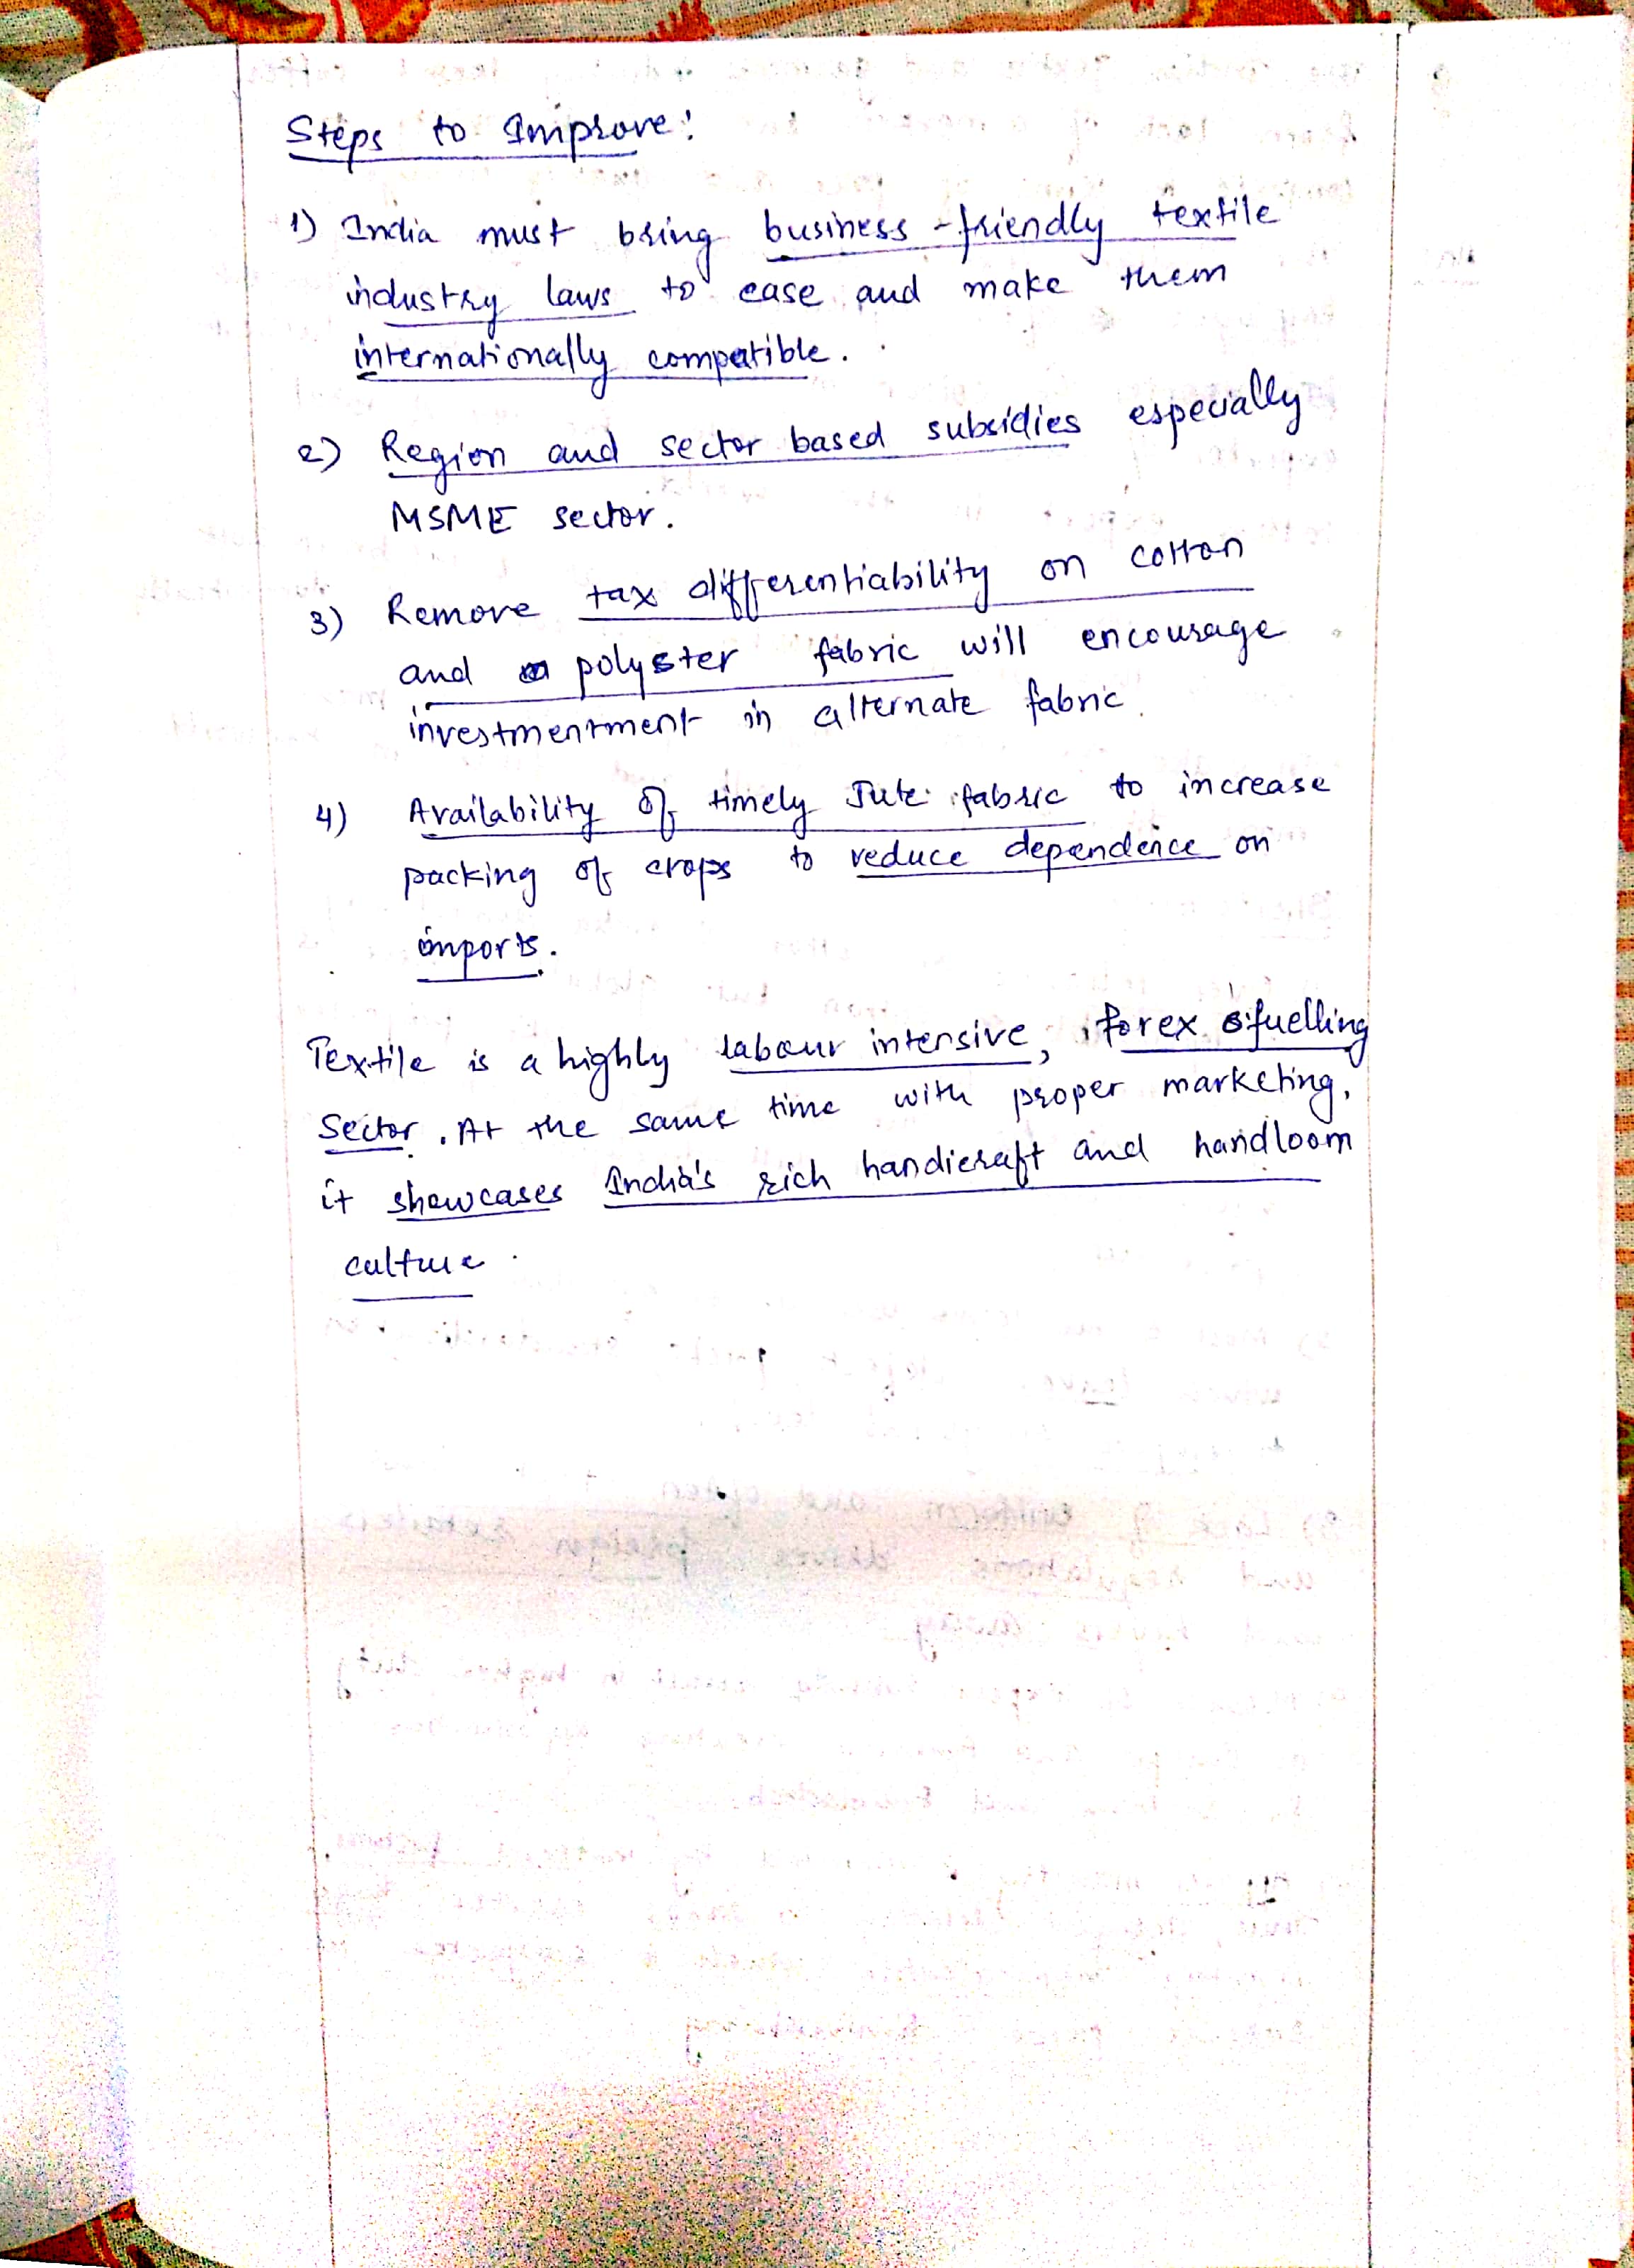 Steps to Improve:
1) India must bring business-friendly textile
industry laws to ease and make them
internationally compatible.
2) Region and sector based subsidies especially
MSME sector.
3) Remove tax differentiability on cotton
and polyster fabric will encourage
investmentment in alternate fabric.
4) Availability of timely Jute fabric to increase
packing of crops to reduce dependence on
imports.
Textile is a highly labour intensive, forex fuelling
sector. At the same time with proper marketing,
it showcases India's rich handicraft and handloom
culture.